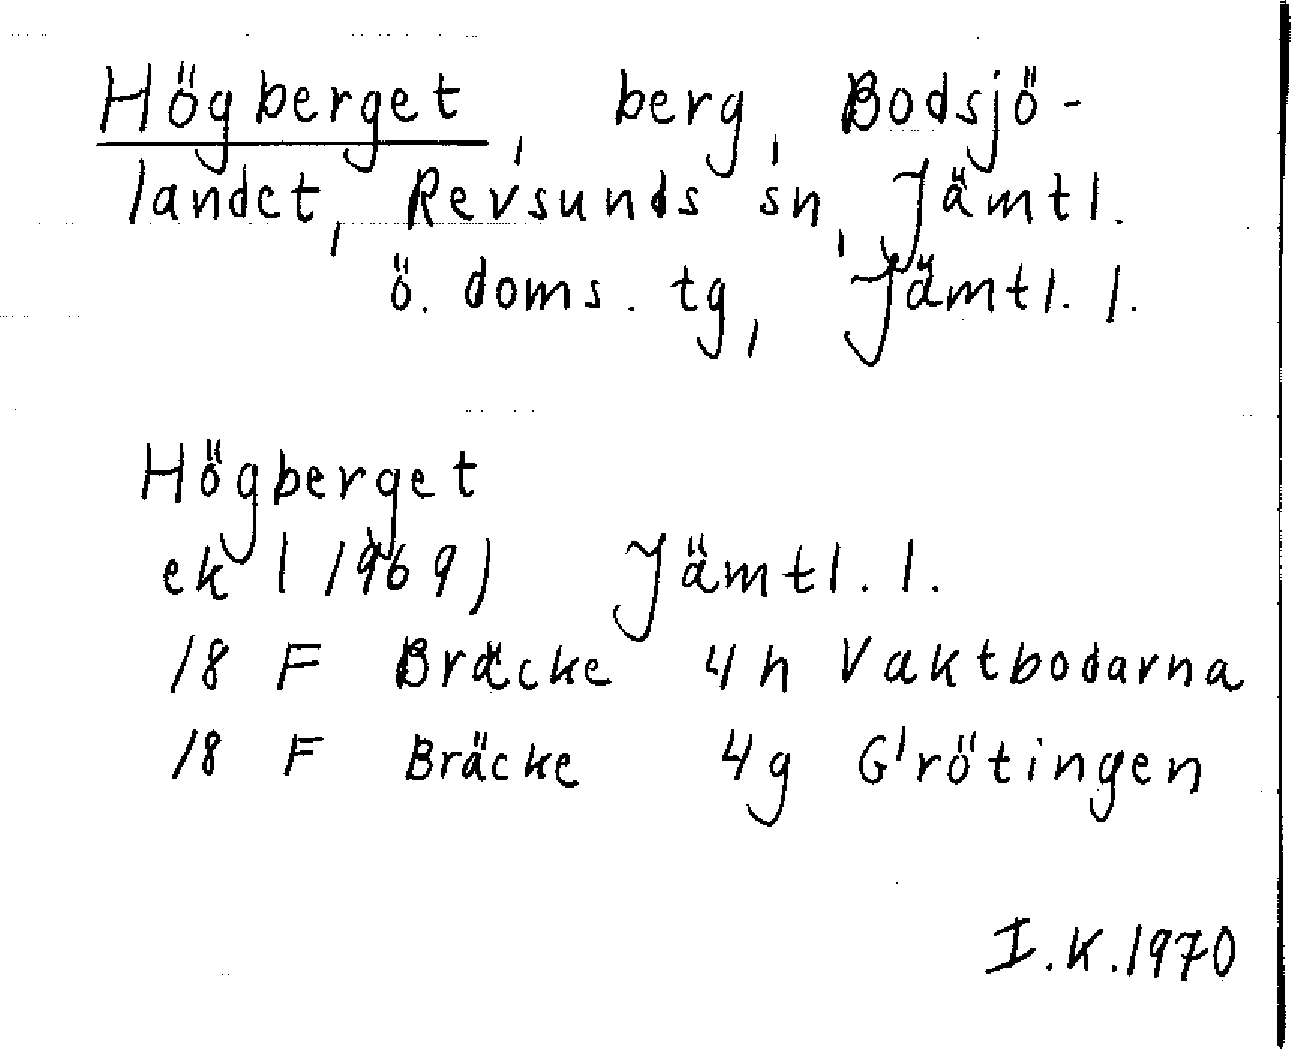 Högberget, berg, Bodsjö-
landet, Revsunds sn, Jämtl.
ö. doms. tg, Jämtl. l.
Högberget
ek (1969) Jämtl. l.
18 F Bräcke 4h Vaktbodarna
18 F Bräcke 4g Grötingen
I.K.1970